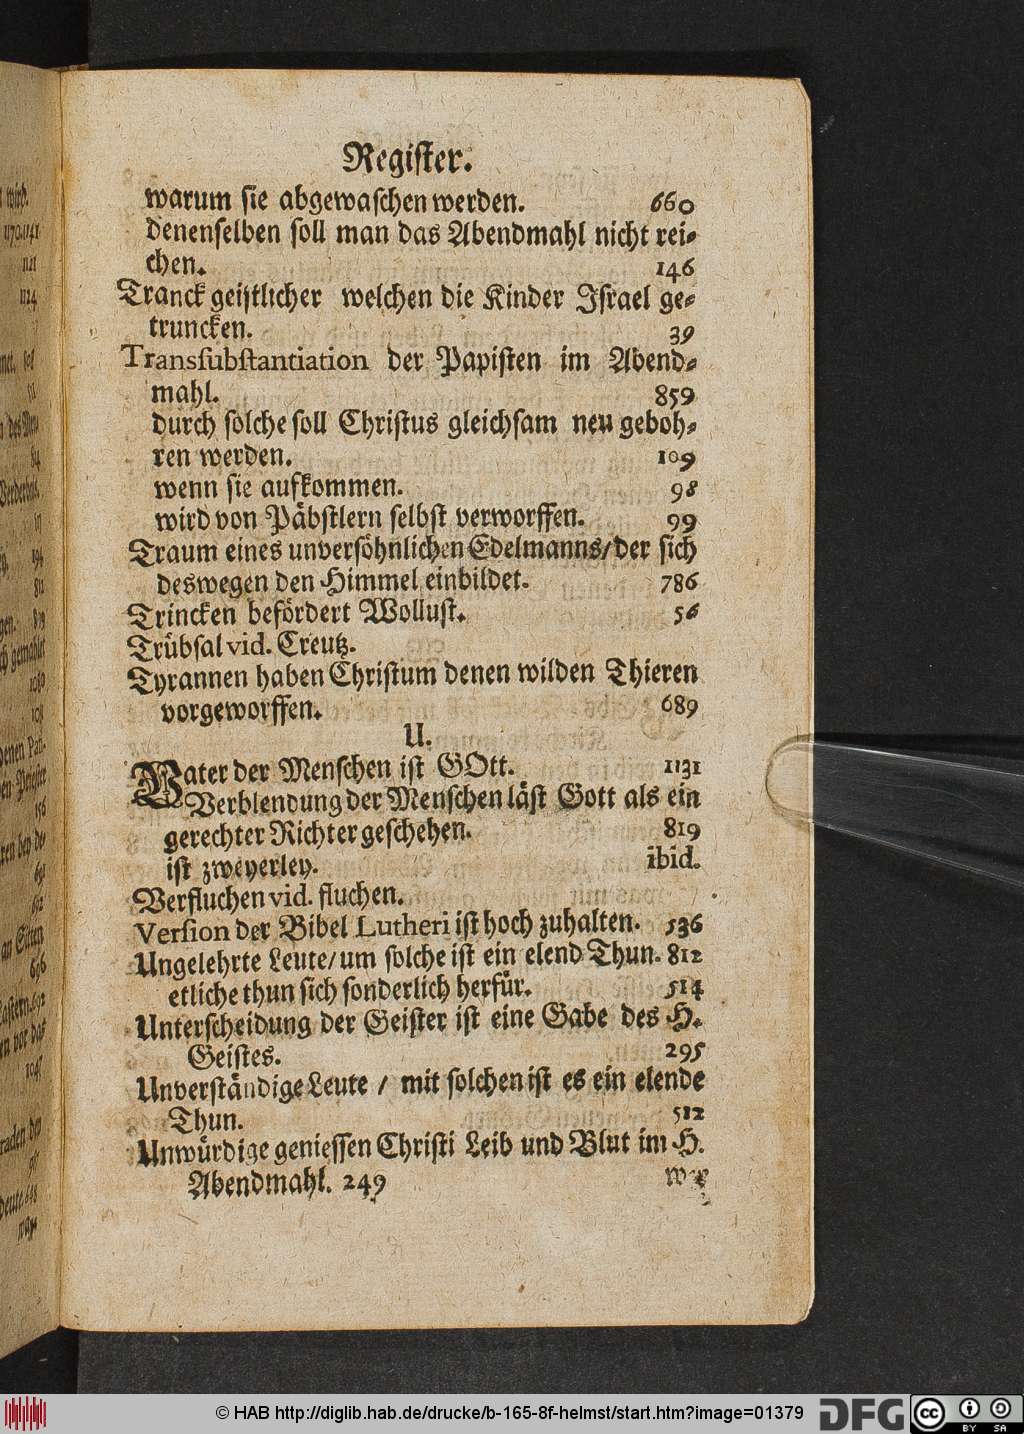 Register.
warum sie abgewaschen werden. 660
denenselben soll man das Abendmahl nicht rei⸗
chen. 146
Tranck geistlicher welchen die Kinder Israel ge⸗
truncken. 39
Transsubstantiation der Papisten im Abend⸗
mahl. 859
durch solche soll Christus gleichsam neu geboh⸗
ren werden. 109
wenn sie aufkommen. 98
wird von Päbstlern selbst verworffen. 99
Traum eines unversöhnlichen Edelmanns/der sich
deswegen den Himmel einbildet. 786
Trincken befördert Wollust. 56
Trübsal vid. Creutz.
Tyrannen haben Christum denen wilden Thieren
vorgeworffen. 689
U.
Vater der Menschen ist GOtt. 1131
Verblendung der Menschen läst Gott als ein
gerechter Richter geschehen. 819
ist zweyerley. ibid.
Verfluchen vid. fluchen.
Version der Bibel Lutheri ist hoch zuhalten. 536
Ungelehrte Leute/um solche ist ein elend Thun. 812
etliche thun sich sonderlich herfür. 514
Unterscheidung der Geister ist eine Gabe des H.
Geistes. 295
Unverständige Leute / mit solchen ist es ein elende
Thun. 512
Unwürdige geniessen Christi Leib und Blut im H.
Abendmahl. 249
© HAB http://diglib.hab.de/drucke/b-165-8f-helmst/start.htm?image=01379
DFG
CC BY SA